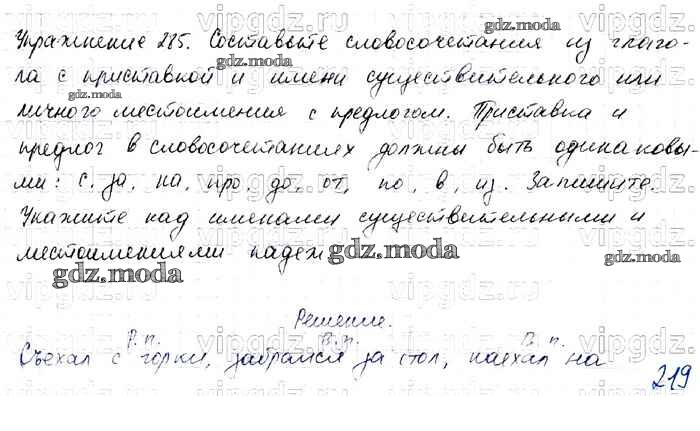 Упражнение 285. Составьте словосочетания из глаго-
ла с приставкой и имени существительного или
личного местоимения с предлогом. Приставка и
предлог в словосочетаниях должны быть одинаковы-
ми: с, за, на, про, до, от, по, в, из. Запишите.
Укажите над именами существительными и
местоимениями падеж
gdz.moda
Решение.
Р.п. В.п. В.п.
Съехал с горки, забрался за стол, наехал на
219